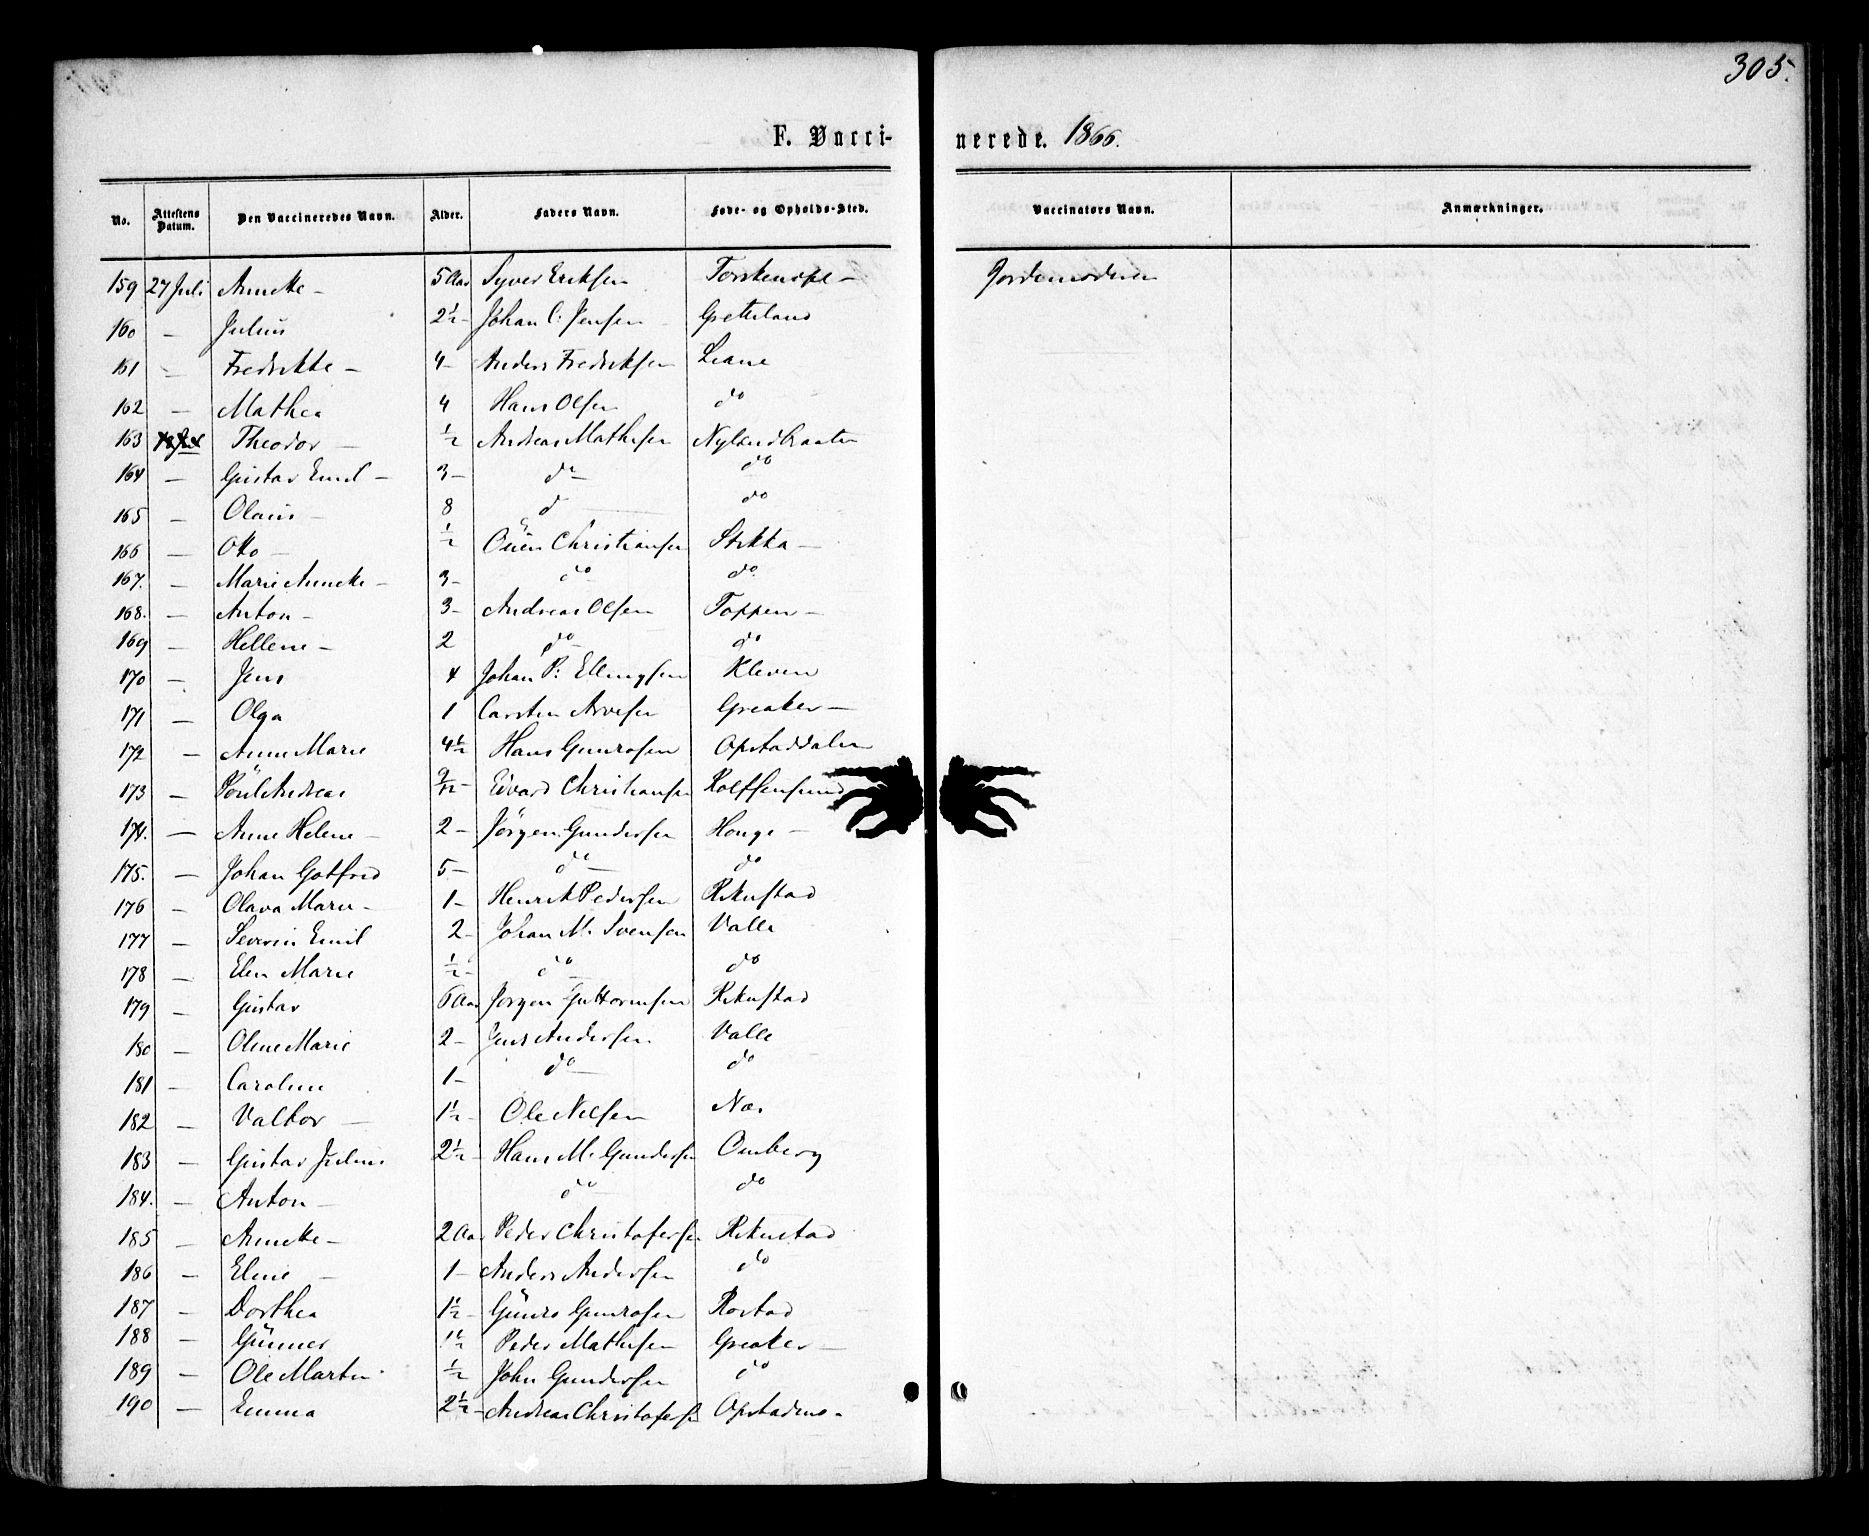 305.
F. Vacci- nerede. 1866.
No. Attestens Datum. Den Vaccineredes Navn. Alder. Faders Navn. Føde- og Opholds-Sted. Vaccinators Navn. Anmærkninger.
159 27 Juli Annette - 5 Aar Syver Eriksen - Jordemoderen
160 - Julius 2½ - Johan C. Jensen Gretteland
161 - Fredrikke - 4 - Anders Fredriksen Leane
162 - Mathea 4 Hans Olsen do
163 Theodor - ½ Andreas Mathisen Nylandbraaten
164 - Gustav Emil - 3 - do - do
165 - Olaus - 8 d do
166 - Otto - ½ Ouen Christiansen Stikka -
167. - Marie Annette - 3 - do do
168. - Anton - 3 - Andreas Olsen Toppen -
169 - Hellene - 2 do - do
170 - Jens 4 Johan P. Ellingsen Kleven
171 - Olga 1 Carsten Arvesen Greaker -
172 - Anne Marie 4½ Hans Gunrosen Opstaddalen
173 - Povl Andreas 9/12 - Edvard Christiansen Rolfsensund
174. - Anne Helene - 2 - Jörgen Gundersen Hauge -
175. - Johan Gotfred 5 - do do
176 - Olava Marie - 1 - Henrik Pedersen Rikustad
177 - Severin Emil 2 - Johan M. Svensen Valle
178 - Elen Marie ½ - do do
179 - Gustav 6 Aar Jörgen Guttormsen Rikustad
180 - Oline Marie 2 - Jens Andersen Valle
181 - Caroline 1 - do do
182 - Valbor - 1½ - Ole Nilsen Nes
183 - Gustav Julius 2½ - Hans M. Gundersen Omberg
184. - Anton - do do
185 - Annette - 2 Aar Peder Christofersen Rikustad
186 - Eline - 1 - Anders Andersen do
187 - Dorthea 1½ - Gunro Gunrosen Rostad
188 - Günner 1½ Peder Mathisen Greaker -
189 - Ole Martin ½ - John Gundersen do
190 - Emma 2½ - Andreas Christofersen Opstadmo -